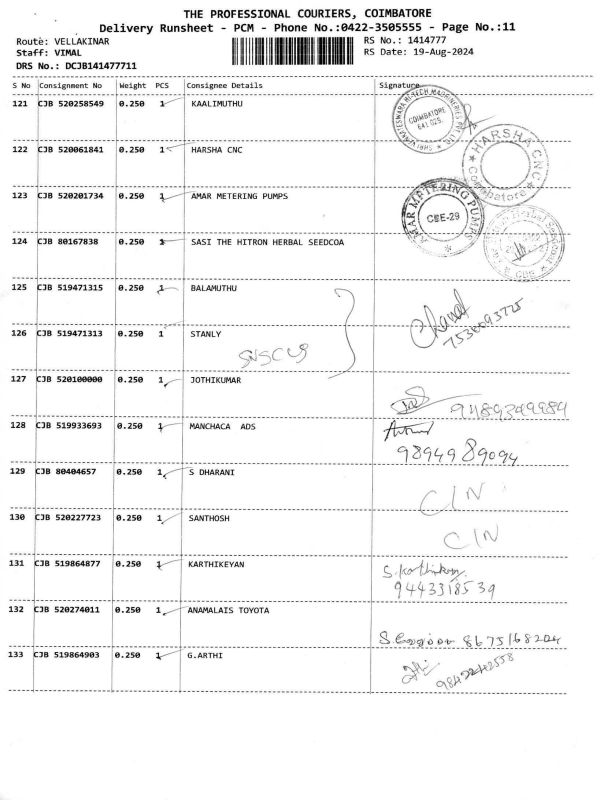 THE PROFESSIONAL COURIERS, COIMBATORE
Delivery Runsheet - PCM - Phone No.:0422-3505555 - Page No.:11
Route: VELLAKINAR RS No.: 1414777
Staff: VIMAL RS Date: 19-Aug-2024
DRS No.: DCJB141477711
S No Consignment No Weight PCS Consignee Details Signature
121 CJB 520258549 0.250 1 KAALIMUTHU
COIMBATORE
641 025.
122 CJB 520061841 0.250 1 HARSHA CNC
HARSHA CNC
Coimbatore
123 CJB 520201734 0.250 1 AMAR METERING PUMPS
AMAR METERING PUMPS
CBE-29
124 CJB 80167838 0.250 1 SASI THE HITRON HERBAL SEEDCOA
125 CJB 519471315 0.250 1 BALAMUTHU
126 CJB 519471313 0.250 1 STANLY
7538093725
127 CJB 520100000 0.250 1 JOTHIKUMAR
9489349984
128 CJB 519933693 0.250 1 MANCHACA ADS
9894989094
129 CJB 80404657 0.250 1 S DHARANI
CIN
130 CJB 520227723 0.250 1 SANTHOSH
CIN
131 CJB 519864877 0.250 1 KARTHIKEYAN
9443318539
132 CJB 520274011 0.250 1 ANAMALAIS TOYOTA
8675168204
133 CJB 519864903 0.250 1 G.ARTHI